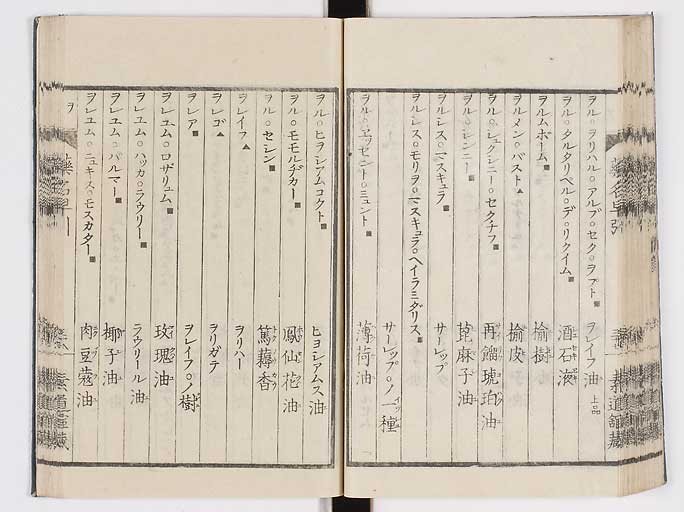 ヲル○ヲリハル○アルブ○セク○ヲプト■ ヲレイフ油 上品
ヲル○タルタリペル○デ○リクイム■ 酒石液
ヲルムボーム■ 榆樹
ヲルメン○バスト▲ 榆皮
ヲル○シュクシニー○セクナフ■ 再餾琥珀油
ヲル○レシンニー■ 蓖麻子油
ヲルシス○マスキュラ■ サーレップ
ヲルシス○モリヲ○マスキュラ○ヘイラミダリス■ サーレップノ一種
ヲル○エッセント○ミュント■ 薄荷油
ヲル○ヒヨシアムコクト■ ヒヨシアムス油
ヲル○モモルヂカー■ 鳳仙花油
ヲル○セシレ■ 篤藕香
ヲレイフ▲ ヲリハー
ヲレゴ▲ ヲリガテ
ヲレア■ ヲレイフ○ノ樹
ヲレユム○ロザリュム■ 玫瑰油
ヲレユム○ハッカ○ラウリー■ ラウリール油
ヲレユム○パルマー■ 椰子油
ヲレユム○ニュキス○モスカター■ 肉豆蔲油
ヲ